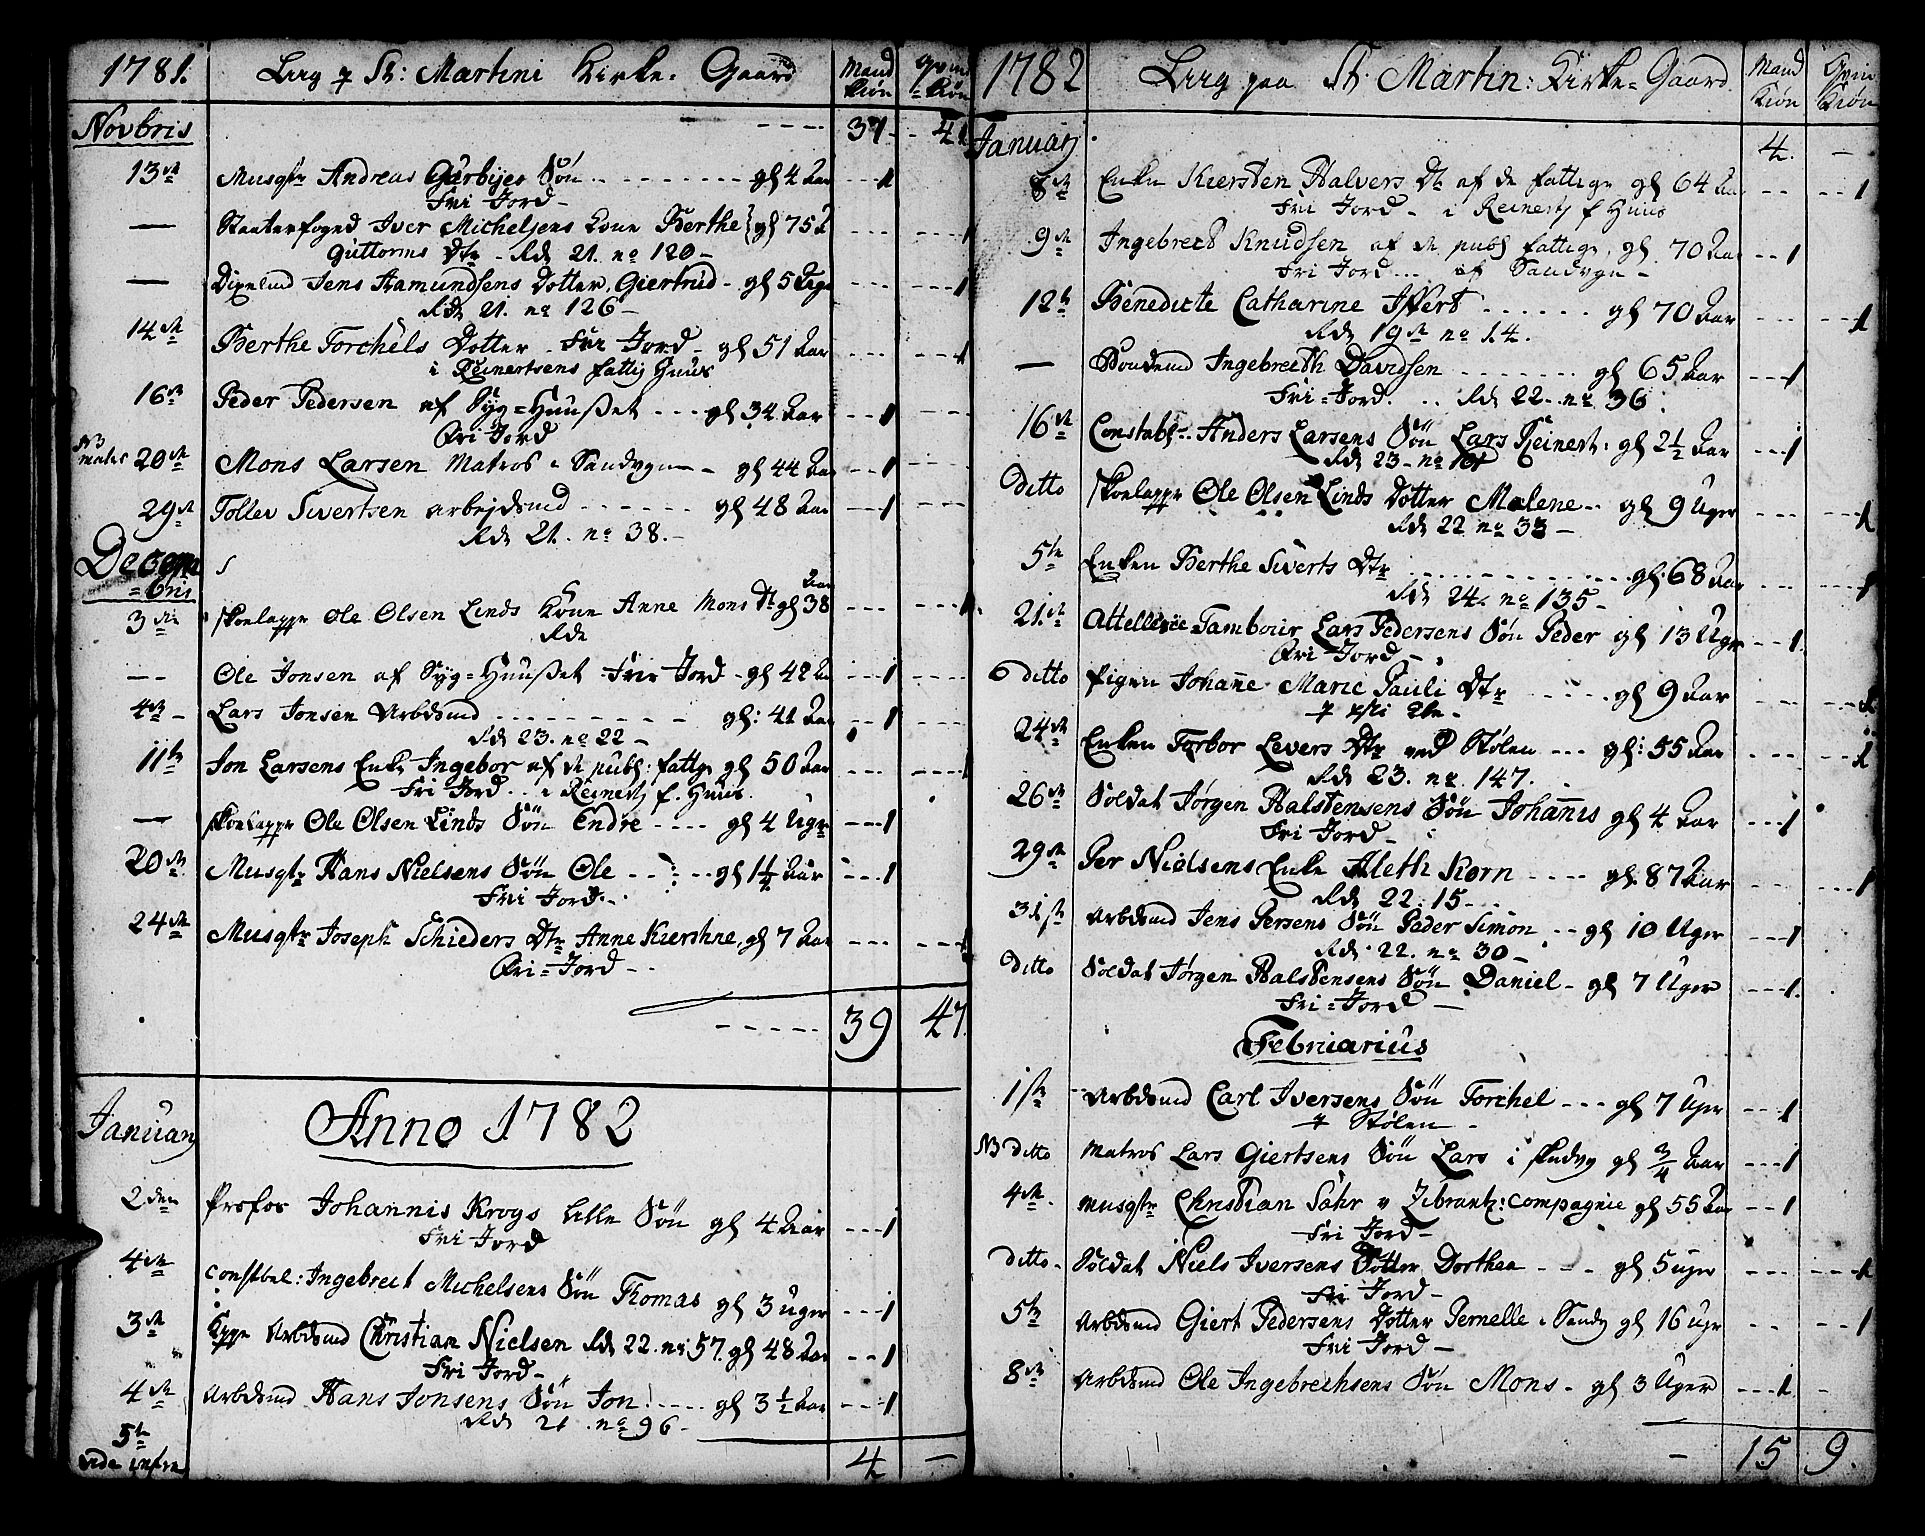 1781. Liig p St: Martini Kirke-Gaard Mand Kiøn Qvind-Kiøn
Novbris ---- 37 - 41
13de Musqtr Andreas Garbyes Søn --- gl 4 Aar --- 1
Fri Jord -
— Iver Michelsens Kone Berthe gl 75 A --- 1
Guttorms Dtr - Rde 21. no 120 -
— Jens Aamundsens Dotter, Giertrud - gl 5 Uger --- 1
Rde 21. no 126 -
14de Berthe Torchels Dotter - Fri Jord - gl 51 Aar --- 1
i Reinertsens fattig Huus
16de Peder Pedersen af Syg=Huuset --- gl 34 Aar --- 1
Fri Jord
NB matr 20de Mons Larsen Matros i Sandvgn - gl 44 Aar --- 1
29de Tollev Sivertsen arbejdsmd --- gl 48 Aar --- 1
Rde 21. no 38. -
Decem=bris
3die Skoelappr Ole Olsen Linds Kone Anne Mons Dtr gl 38 Aar --- 1
Rde
-- Ole Jonsen af Syg=Huuset Frie Jord - gl 42 Aar --- 1
4de - Lars Jonsen Arbdsmd --- gl: 41 Aar --- 1
Rde 23. no 22 -
11te Jon Larsens Enke Ingebor af de publ: fattge gl 50 Aar --- 1
Fri Jord .. i Reinertz f. Huus.
— Skoelappr Ole Olsen Linds Søn Endre ---- gl 4 Ugr --- 1
20de Musqtr Hans Nielsens Søn Ole --- gl 1¼ Aar --- 1
Fri Jord. -
24de Musqtr Joseph Schieders Dtr Anne Kierstine, gl 7 Aar --- 1
Fri=Jord - -
----- 39 47.
Januarj Anno 1782
2den Profos Johannis Krogs lille Søn gl 4 Aar --- 1
Fri Jord
4de Constbel: Ingebrect Michelsens Søn Thomas gl 3 uger --- 1
3de Arbdsmd Christian Nielsen Rde 22. no 57. gl 48 Aar --- 1
Fri Jord -
4de Arbdsmd Hans Jonsens Søn Jon! ---- gl 3½ Aar --- 1
Rde 21. no 96 -
5te
vide infra 4 —
1782 Liig paa St. Martin: Kirke=Gaard. Mand Kiøn Qvin Kiøn
Januarj 4. -
8de Enken Kiersten Halvers Dtr af de fattige gl 64 Aar --- 1
Fri Jord - i Reinertz f Huus
9de Ingebrect Knudsen af de publ fattige, gl. 70 Aar --- 1
Fri Jord --- af Sandvgn -
12te Benedicte Catharine Iffert ------ gl 70 Aar --- 1
Rde 19de no 14.
— Bondemd Ingebrecth Davidsen ------- gl 65 Aar --- 1
Fri=Jord. .. Rde 22. no 36.
16de Constabl:- Anders Larsens Søn Lars Reinert: gl 2½ Aar --- 1
Rde 23 - no 101
ditto Skoelappr Ole Olsen Linds Dotter Malene -- gl 9 Uger --- 1
Rde 22 no 33 -
5te Enken Berthe Siverts Dtr ------ gl: 68 Aar --- 1
Rde 24. no 135 -
21.de Attellerie Tambour Lars Pedersens Søn Peder gl 13 Uger -- 1.
Fri Jord - .
ditto Pigen Johanne Marie Pauli Dtr ----- gl 9 Aar --- 1
24de Enken Torbor Levers Dtr ved Stølen --- gl: 55 Aar --- 1
Rde 23. no 147.
26de Soldat Jørgen Halstensens Søn Johannis gl 4 Aar --- 1
Fri Jord -
29de Per Nielsens Enke Aleth Korn ---- gl. 87 Aar --- 1
Rde 22. 15 - -
31te Arbdsmd Jens Persens Søn Peder Simon -- gl 10 Uger --- 1
Rde 22. no 30 -
ditto Soldat Jørgen Halstensens Søn Daniel - gl 7 Uger --- 1.
Fri=Jord —
Februarius
1ste Arbdsmd Carl Iversens Søn Torchel --- gl 7 Uger --- 1
p Stølen -
NB ditto Matros Lars Giertsens Søn Lars i Sandvg gl ¾ Aar --- 1
4de. Musqtr Christian Sahr v Zibrantz: Compagnie gl 55 Aar -- 1
Fri Jord -
ditto - Soldat Niels Iversens Dotter Dorthea --- gl 5 uger --- 1
Fri Jord -
5te Arbdsmd Giert Pedersens Dotter Pernelle i Sandv gl 16 ugr -- 1
Fri Jord -
8de Arbdsmd Ole Ingebrechsens Søn Mons - gl 3 Uger --- 1 -
- 15 9.